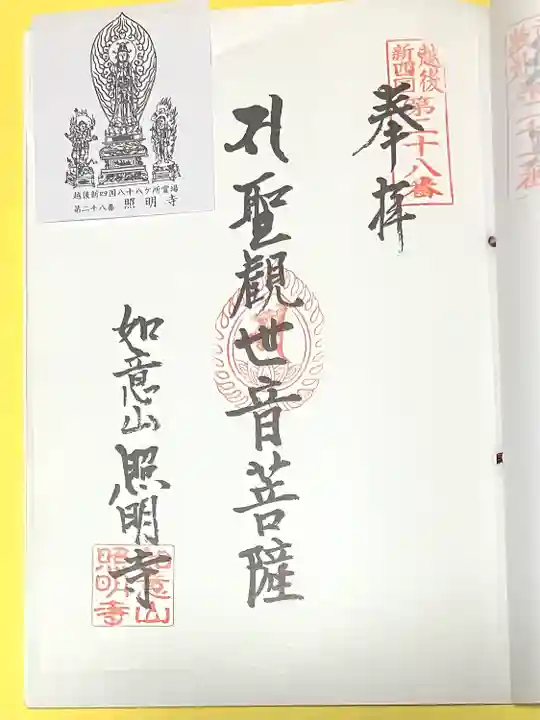 越後
新四国 第二十八番
奉拝
聖觀世音菩薩
如意山照明寺
如意山
照明寺
越後新四国八十八ヶ所霊場
第二十八番 照明寺